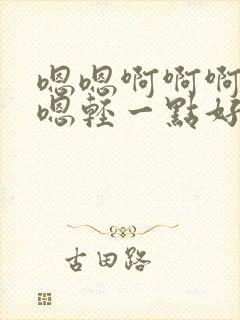 嗯嗯啊啊啊
嗯輕一點好
古田路